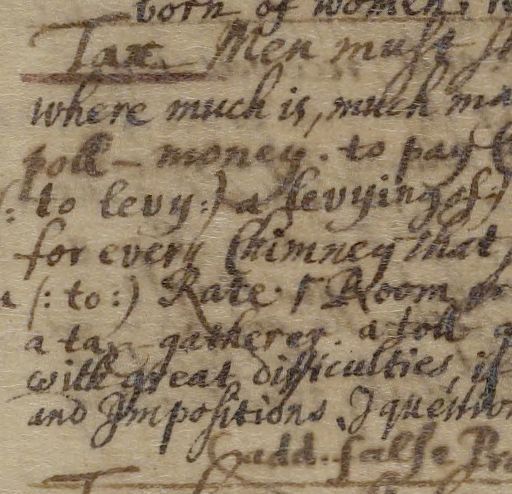 born of women,
Tax. Men must
where much is, much
poll-money. to pay
(: to levy:) a levying of:)
for every Chimney that
(: to:) Rate. Room
a tax-gatherer. a toll
with great difficulties,
and Jmpositions. J question
add. false